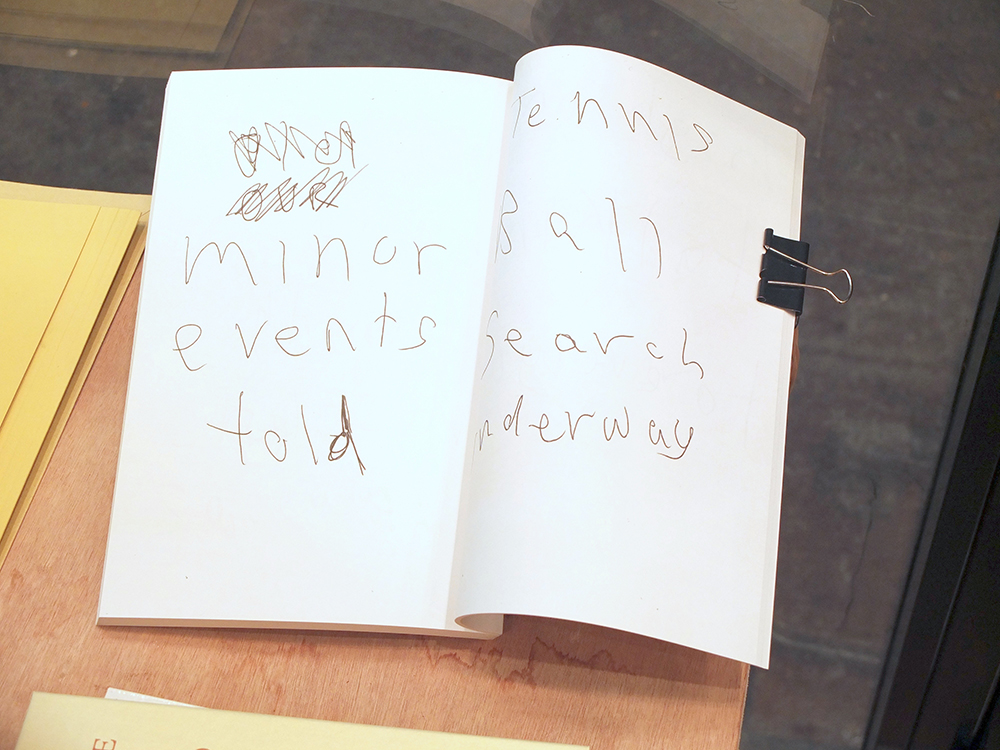 minor
events
told
Tennis
Ball
search
nderway